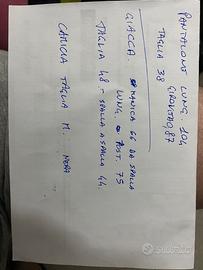 PANTALONI LUNG. 104
GIROVITA, 87
TAGLIA 38
GIACCA. MANICA 66 DA SPALLA
LUNG. POST. 75
TAGLIA 48 - SPALLA A SPALLA 44
CAMICIA TAGLIA M. NERA
SUBITO